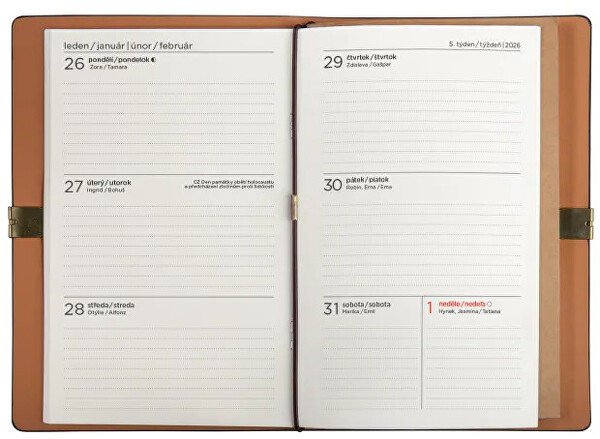 leden / január | únor / február
26 pondělí / pondelok
Zora / Tamara
27 úterý / utorok
Ingrid / Bohuš
CZ Den památky obětí holocaustu
a předcházení zločinům proti lidskosti
28 středa / streda
Otýlie / Alfonz
5. týden / týždeň | 2026
29 čtvrtek / štvrtok
Zdislava / Gašpar
30 pátek / piatok
Robin, Erna / Ema
31 sobota / sobota
Marika / Emil
1 neděle / nedeľa
Hynek, Jasmína / Tatiana